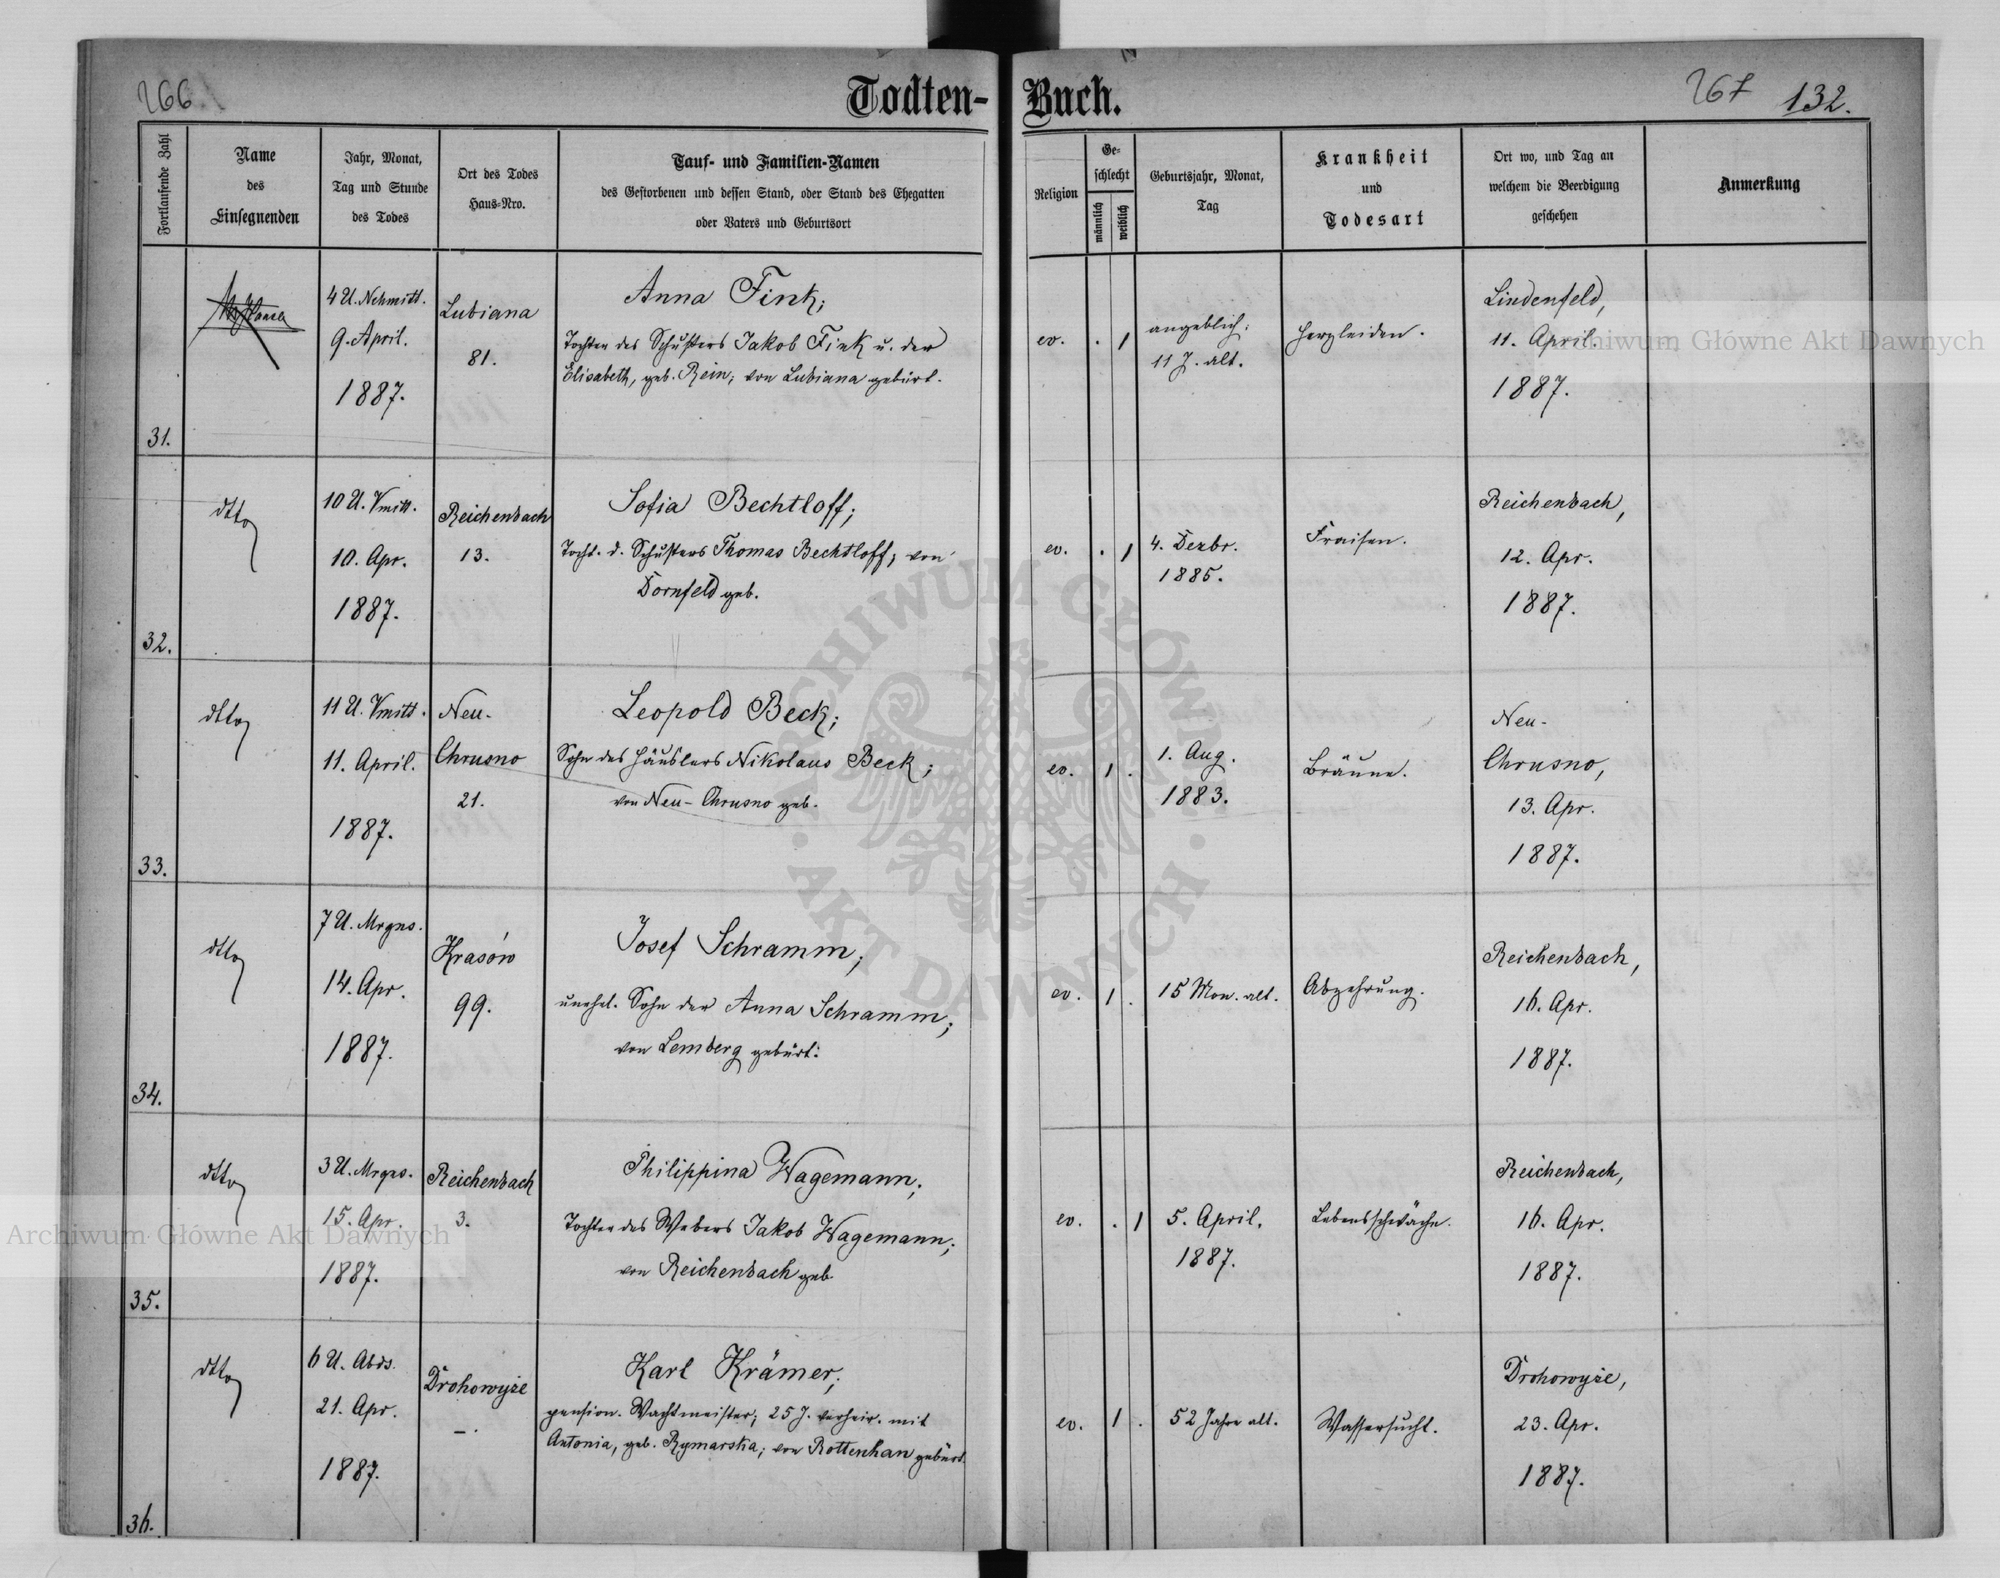 266.
Todten-
Buch.
267 132.
Fortlaufende Zahl
Name
des
Einsegnenden
Jahr, Monat,
Tag und Stunde
des Todes
Ort des Todes
Haus-Nro.
Tauf- und Familien-Namen
des Gestorbenen und dessen Stand, oder Stand des Ehegatten
oder Vaters und Geburtsort
Religion
Ge-
schlecht
männlich
weiblich
Geburtsjahr, Monat,
Tag
Krankheit
und
Todesart
Ort wo, und Tag an
welchem die Beerdigung
geschehen
Anmerkung
31.
4 U. Nchmitt.
9. April.
1887.
Lubiana
81.
Anna Fink;
Tochter des Schusters Jakob Fink u. der
Elisabeth, geb. Rein; von Lubiana gebürt.
ev.
. 1
angeblich:
11 J. alt.
Herzleiden.
Lindenfeld,
11. April.
1887.
32.
dtto
10 U. Vmitt.
10. Apr.
1887.
Reichenbach
13.
Sofia Bechtloff;
Tocht. d. Schusters Thomas Bechtloff; von
Dornfeld geb.
ev.
. 1
4. Dezbr.
1885.
Fraisen.
Reichenbach,
12. Apr.
1887.
33.
dtto
11 U. Vmitt.
11. April.
1887.
Neu-
Chrusno
21.
Leopold Beck;
Sohn des Häuslers Nikolaus Beck;
von Neu-Chrusno geb.
ev.
1 .
1. Aug.
1883.
Bräune.
Neu-
Chrusno,
13. Apr.
1887.
34.
dtto
7 U. Mrgns.
14. Apr.
1887.
Krasów
99.
Josef Schramm;
unehel. Sohn der Anna Schramm;
von Lemberg gebürt.
ev.
1 .
15 Mon. alt.
Abzehrung.
Reichenbach,
16. Apr.
1887.
35.
dtto
3 U. Mrgns.
15. Apr.
1887.
Reichenbach
3.
Philippina Wagemann;
Tochter des Webers Jakob Wagemann;
von Reichenbach geb.
ev.
. 1
5. April.
1887.
Lebensschwäche.
Reichenbach,
16. Apr.
1887.
36.
dtto
6 U. Abds.
21. Apr.
1887.
Drohowyże
—.
Karl Krämer;
pension. Wachtmeister; 25 J. verheir. mit
Antonia, geb. Rymarska; von Rottenhan gebürt.
ev.
1 .
52 Jahre alt.
Wassersucht.
Drohowyże,
23. Apr.
1887.
Archiwum Główne Akt Dawnych
Archiwum Główne Akt Dawnych
ARCHIWUM GŁÓWNE
AKT DAWNYCH